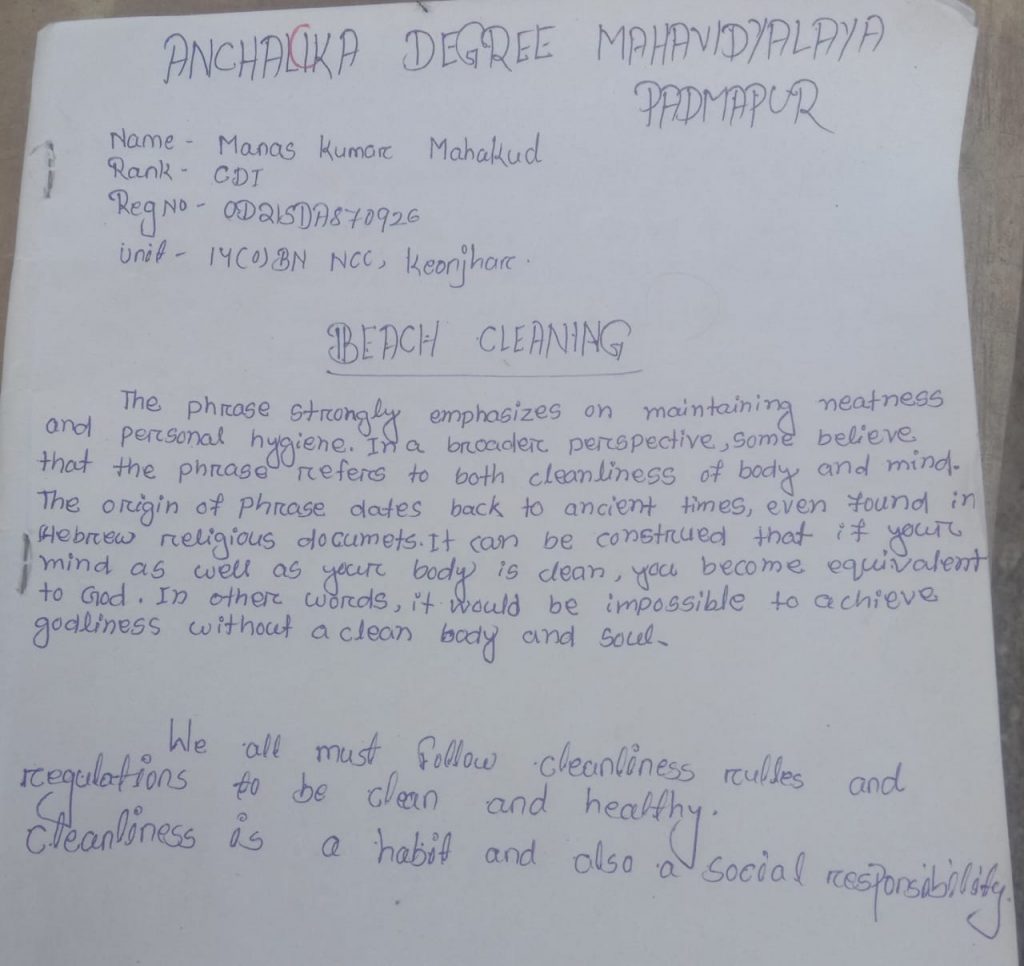 ANCHALIKA DEGREE MAHAVIDYALAYA
PADMAPUR
Name - Manas Kumar Mahakud
Rank - CDT
Reg No - OD21SDA870926
Unit - 14(O)BN NCC, Keonjhar.
BEACH CLEANING
The phrase strongly emphasizes on maintaining neatness
and personal hygiene. In a broader perspective, some believe
that the phrase refers to both cleanliness of body and mind.
The origin of phrase dates back to ancient times, even found in
Hebrew religious documets. It can be construed that if your
mind as well as your body is clean, you become equivalent
to God. In other words, it would be impossible to achieve
godliness without a clean body and soul.
We all must follow cleanliness rulles and
regulations to be clean and healthy.
Cleanliness is a habit and also a social responsibility.